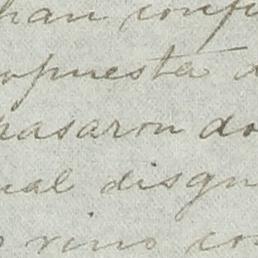 han confi
opuesta a
pasaron do
ual disgu
vino co